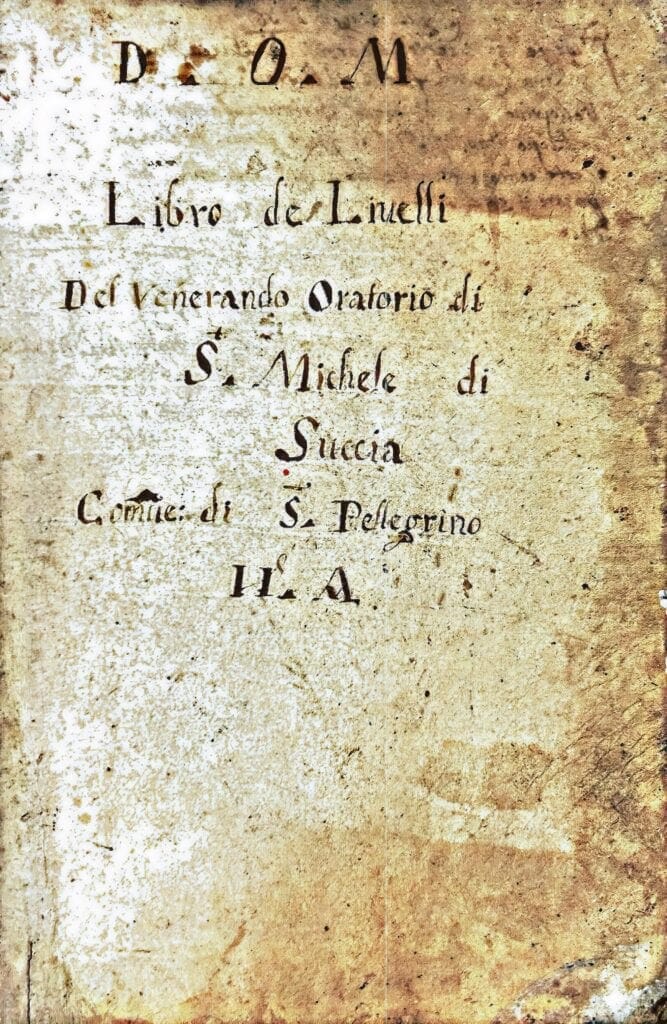 D. O. M
Libro de Liuelli
Del Venerando Oratorio di
S.t Michele di
Succia
Comūe: di S.t Pellegrino